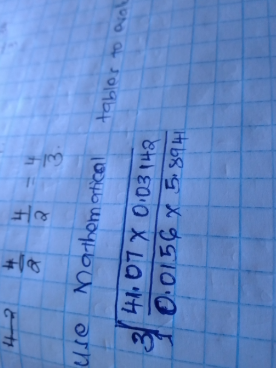 4
4/2 4/2 = 4/3.
Use Mathematical tables to
3√ 41.07 × 0.03142
0.0156 × 5.894